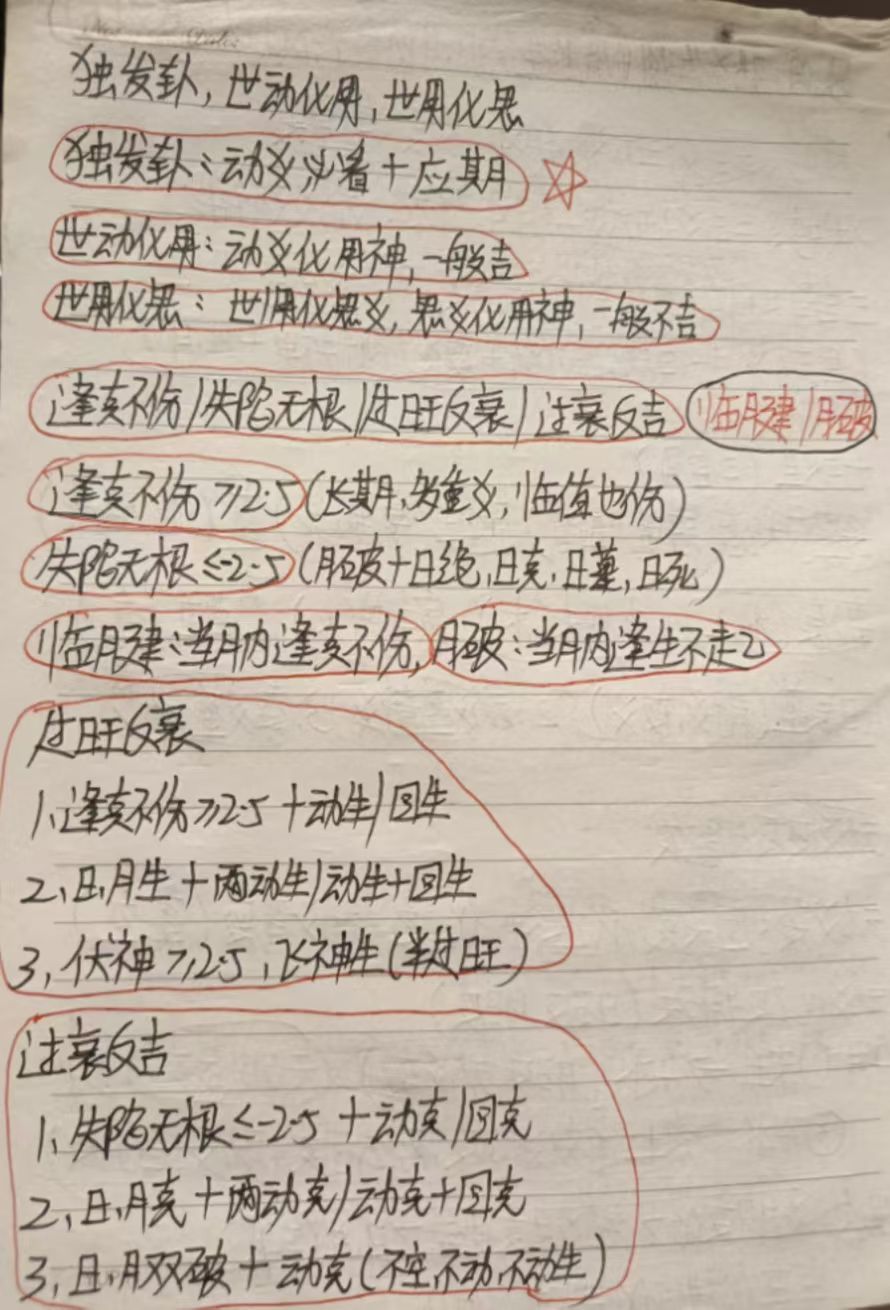 独发卦,世动化用,世用化忌
独发卦:动爻必看+应期
世动化用:动爻化用神,一般吉
世用化忌:世/用化忌爻,忌爻化用神,一般不吉
逢克不伤/失陷无根/过旺反衰/过衰反吉 临月建/月破
逢克不伤≥2.5(长期,多重爻,临值也伤)
失陷无根≤-2.5(月破+日绝,日克,日墓,日死)
临月建:当月内逢克不伤,月破:当月内逢生不走
过旺反衰
1、逢克不伤≥2.5+动生/回生
2、日、月生+两动生/动生+回生
3、伏神≥2.5,飞神生(半过旺)
过衰反吉
1、失陷无根≤-2.5+动克/回克
2、日、月克+两动克/动克+回克
3、日、月双破+动克(不空,不动,不动生)